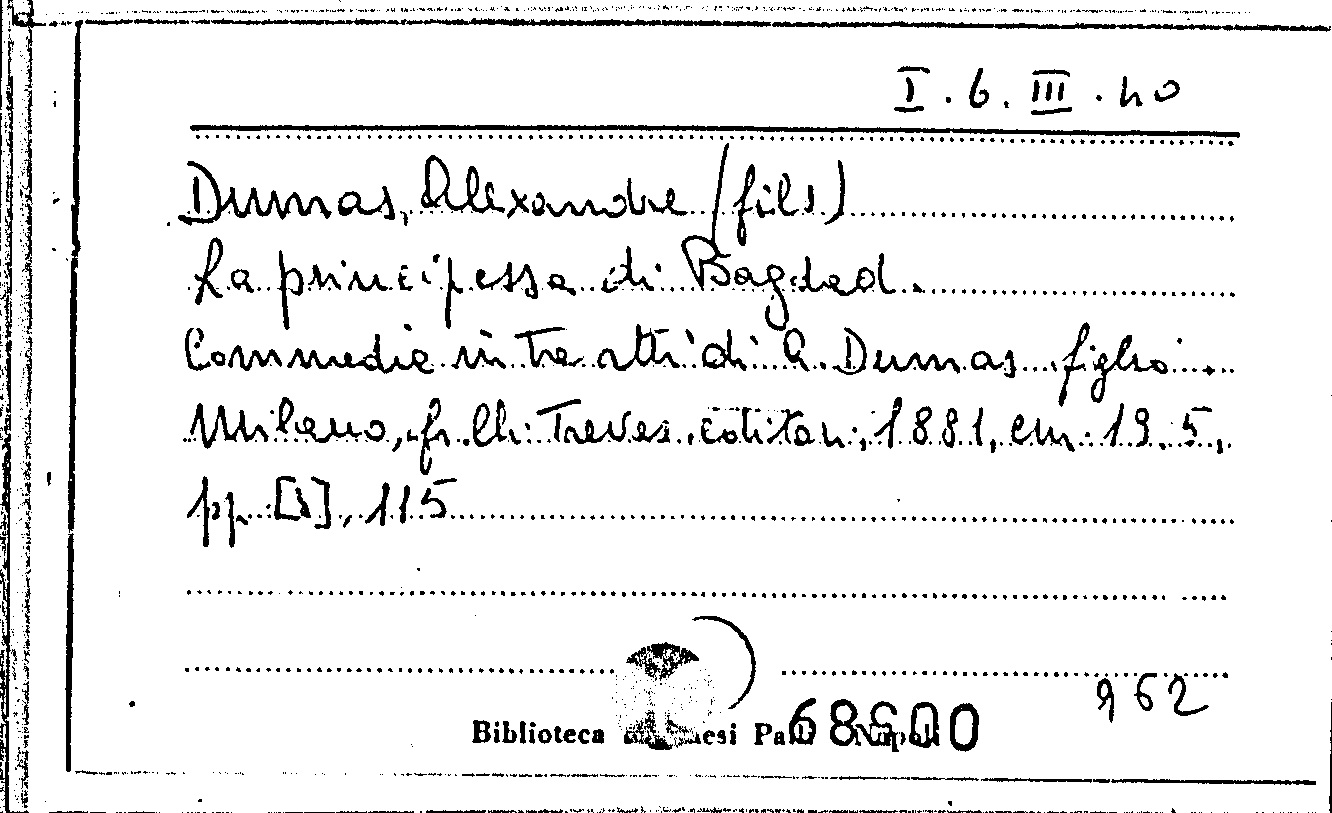 I. 6. III. 40
Dumas, Alexandre (fils)
La principessa di Bagdad.
Commedia in tre atti di A. Dumas figlio.
Milano, fr.lli Treves editori, 1881, cm. 19.5,
pp. [], 115
962
Biblioteca Napoli 68600